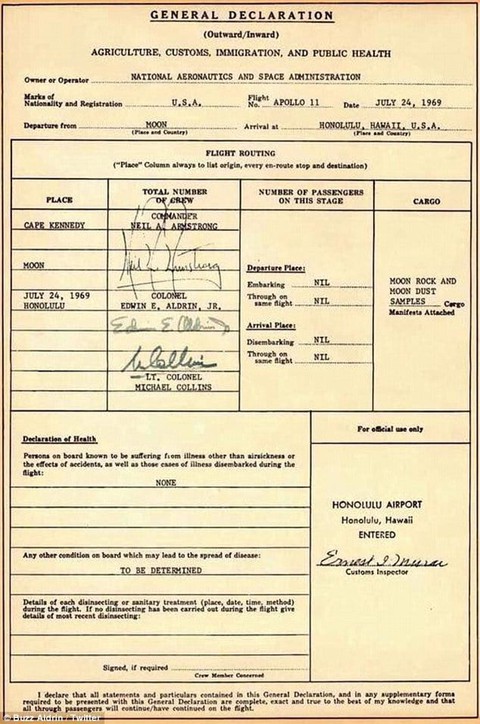 GENERAL DECLARATION
(Outward/Inward)
AGRICULTURE, CUSTOMS, IMMIGRATION, AND PUBLIC HEALTH
Owner or Operator NATIONAL AERONAUTICS AND SPACE ADMINISTRATION
Marks of Nationality and Registration U.S.A. Flight No. APOLLO 11 Date JULY 24, 1969
Departure from MOON (Place and Country) Arrival at HONOLULU, HAWAII, U.S.A. (Place and Country)
FLIGHT ROUTING
("Place" Column always to list origin, every en-route stop and destination)
PLACE
CAPE KENNEDY
MOON
JULY 24, 1969
HONOLULU
TOTAL NUMBER
OF CREW
COMMANDER
NEIL A. ARMSTRONG
Neil A. Armstrong
COLONEL
EDWIN E. ALDRIN, JR.
Edwin E. Aldrin
M Collins
LT. COLONEL
MICHAEL COLLINS
NUMBER OF PASSENGERS
ON THIS STAGE
Departure Place:
Embarking NIL
Through on
same flight NIL
Arrival Place:
Disembarking NIL
Through on
same flight NIL
CARGO
MOON ROCK AND
MOON DUST
SAMPLES Cargo
Manifests Attached
Declaration of Health
Persons on board known to be suffering from illness other than airsickness or
the effects of accidents, as well as those cases of illness disembarked during the
flight:
NONE
Any other condition on board which may lead to the spread of disease:
TO BE DETERMINED
Details of each disinsecting or sanitary treatment (place, date, time, method)
during the flight. If no disinsecting has been carried out during the flight give
details of most recent disinsecting:
Signed, if required
Crew Member Concerned
For official use only
HONOLULU AIRPORT
Honolulu, Hawaii
ENTERED
Ernest I. Murai
Customs Inspector
I declare that all statements and particulars contained in this General Declaration, and in any supplementary forms
required to be presented with this General Declaration are complete, exact and true to the best of my knowledge and that
all through passengers will continue/have continued on the flight.
© Buzz Aldrin / Twitter